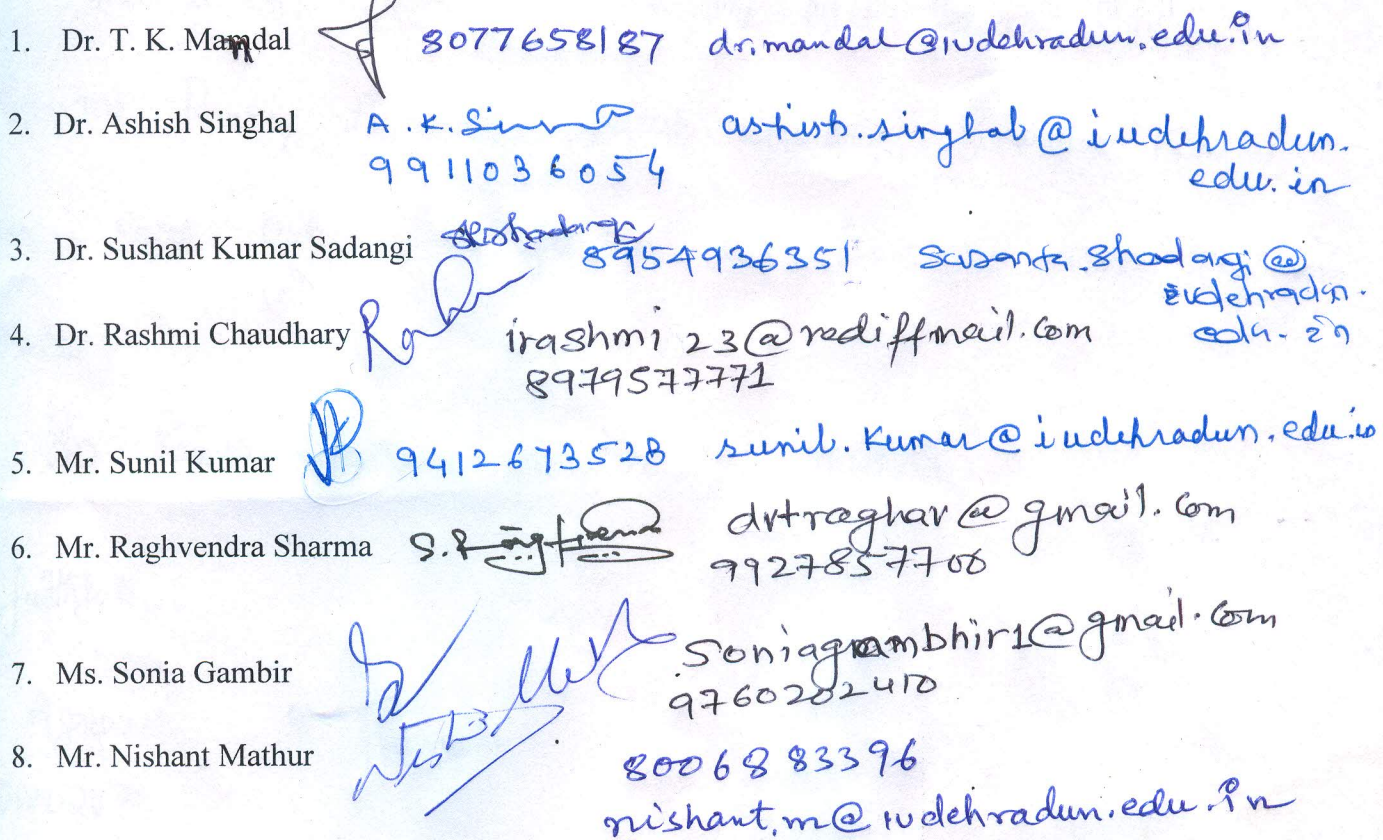 1. Dr. T. K. Mandal 8077658187 dr.mandal@iudehradun.edu.in
2. Dr. Ashish Singhal A.K. ashish.singhal@iudehradun.
9911036054 edu.in
3. Dr. Sushant Kumar Sadangi 8954936351 Susanta.Shadangi@
iudehradun.
4. Dr. Rashmi Chaudhary irashmi23@rediffmail.com edu.in
8979577771
5. Mr. Sunil Kumar 9412673528 sunil.Kumar@iudehradun.edu.in
6. Mr. Raghvendra Sharma drtraghav@gmail.com
9927857706
7. Ms. Sonia Gambir Soniagambhir1@gmail.com
9760202410
8. Mr. Nishant Mathur 8006883396
nishant.m@iudehradun.edu.in